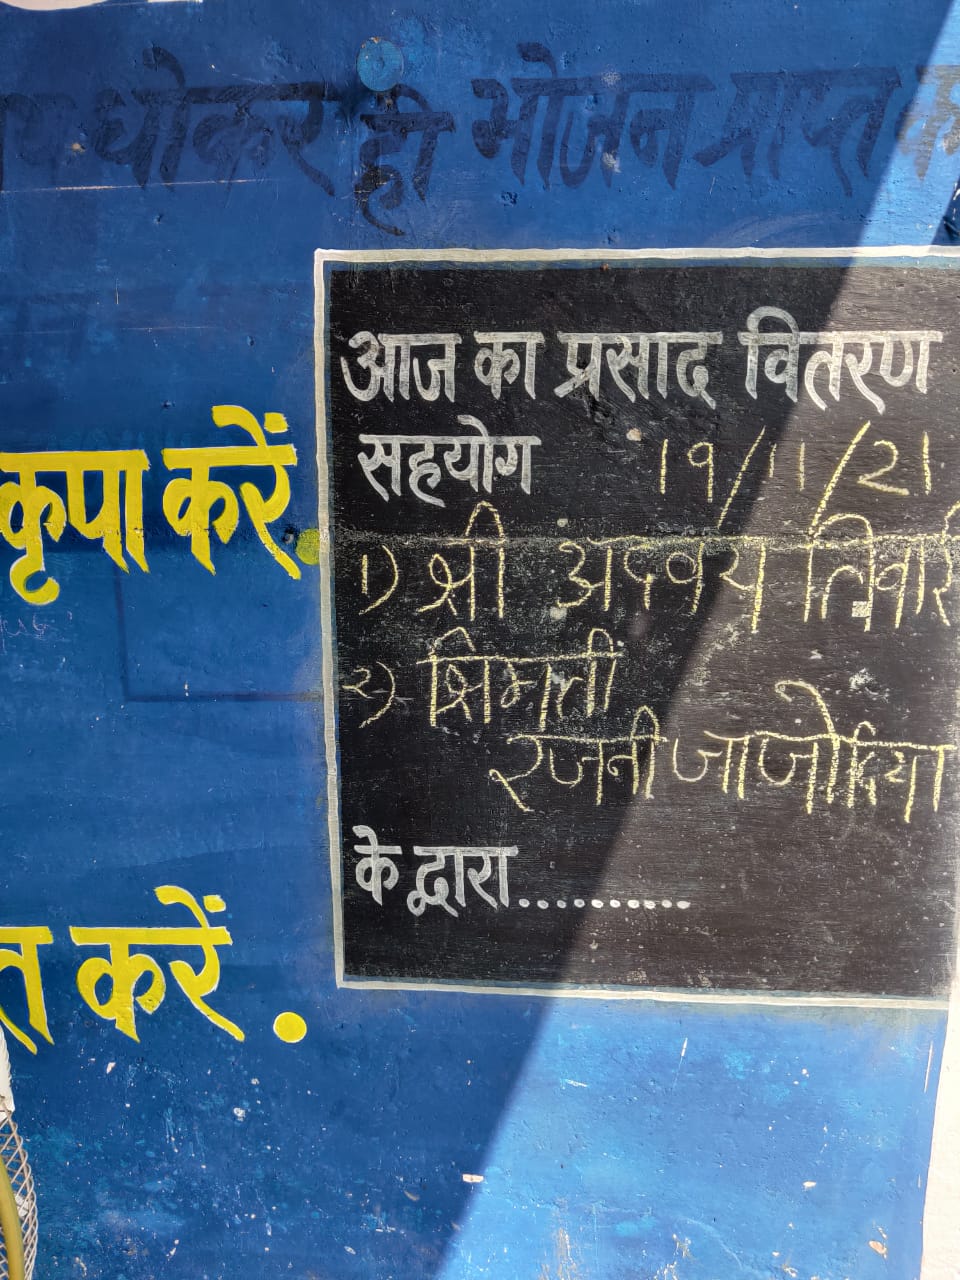 धोकर ही भोजन प्राप्त
कृपा करें.
आज का प्रसाद वितरण
सहयोग 19/11/21
1) श्री अदर्वय तिवारी
२) श्रिमती
रजनी जाजोदिया
के द्वारा..........
करें.